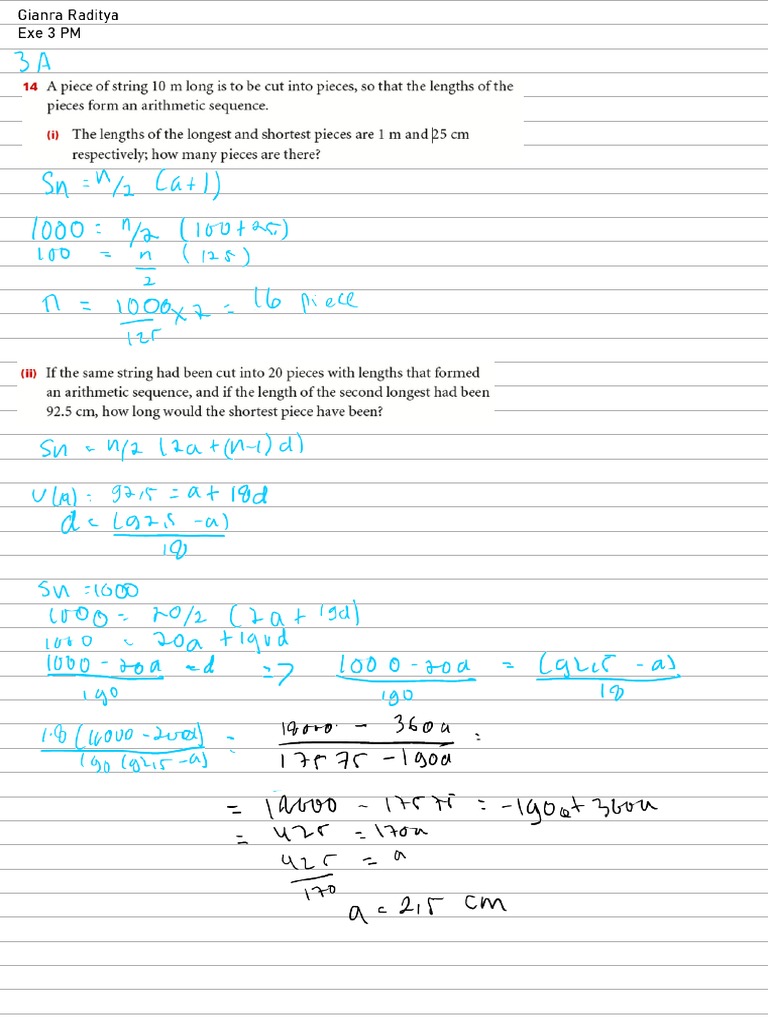 Gianra Raditya
Exe 3 PM
3 A
14 A piece of string 10 m long is to be cut into pieces, so that the lengths of the
pieces form an arithmetic sequence.
(i) The lengths of the longest and shortest pieces are 1 m and 25 cm
respectively; how many pieces are there?
Sn = n/2 (a+l)
1000 = n/2 (100+25)
100 = n/2 (125)
n = 1000/125 x 2 = 16 piece
(ii) If the same string had been cut into 20 pieces with lengths that formed
an arithmetic sequence, and if the length of the second longest had been
92.5 cm, how long would the shortest piece have been?
Sn = n/2 (2a+(n-1)d)
92,5 = a + 18d
d = (92,5 - a)/18
Sn = 1000
1000 = 20/2 (2a + 19d)
1000 = 20a + 190d
(1000 - 20a)/190 = d => (1000 - 20a)/190 = (92,5 - a)/18
18000 - 360a / 17575 - 190a =
= 18000 - 17575 = -190a + 360a
= 425 = 170a
425/170 = a
a = 2,5 cm